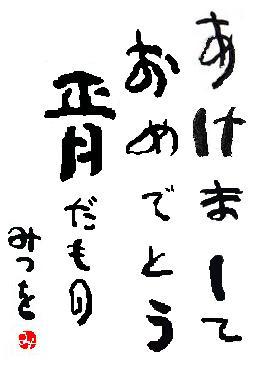 あけまして
おめでとう
正月だもの
みつを